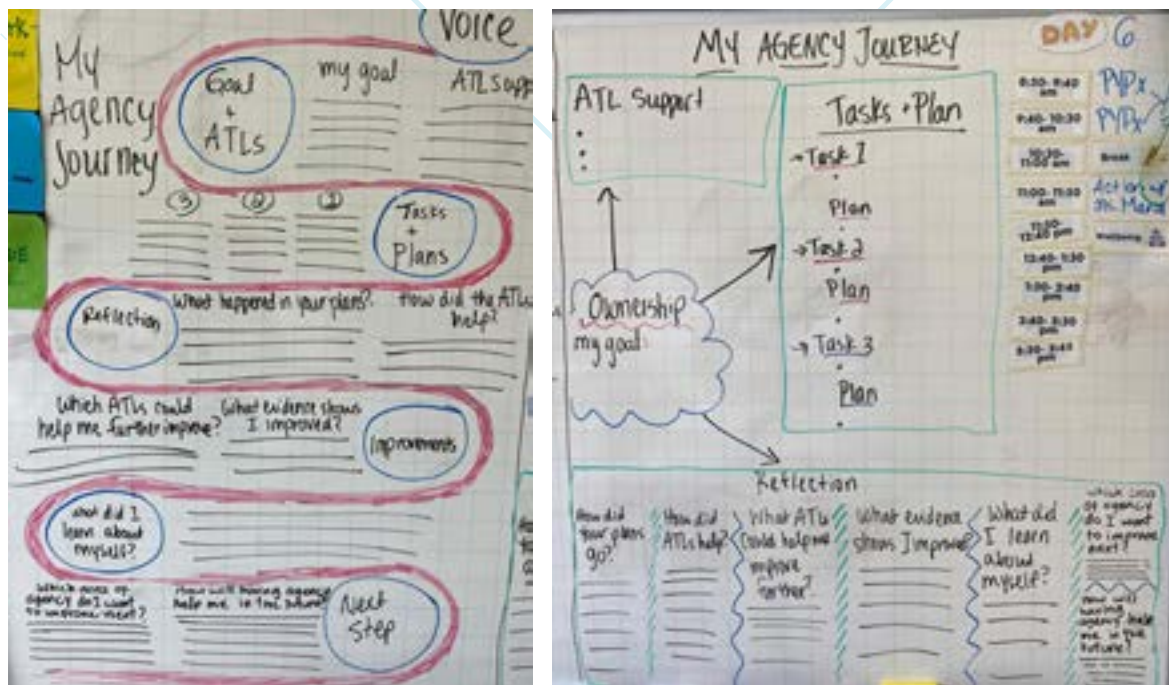 My
Agency
Journey
Voice
Goal
+
ATLs
my goal
ATL supp
③
②
①
Tasks
+
Plans
Reflection
What happened in your plans?
How did the ATLs
help?
Which ATLs could
help me further improve?
What evidence shows
I improved?
Improvements
What did I
learn about
myself?
Which area of
agency do I want
to improve next?
How will having agency
help me in the future?
Next
Step
MY AGENCY JOURNEY
DAY 6
ATL Support
Tasks + Plan
→ Task 1
Plan
→ Task 2
Plan
→ Task 3
Plan
Ownership
my goal:
9:40-10:30
am
PYPx
10:30-
11:00 am
Break
11:00-11:50
am
12:40-1:30
pm
Reflection
How did
your plans
go?
How did
ATLs help?
What ATLs
could help me
improve
further?
What evidence
shows I improved?
What did
I learn
about
myself?
Which area
of agency
do I want
to improve
next?
How will
having
agency help
me in the
future?